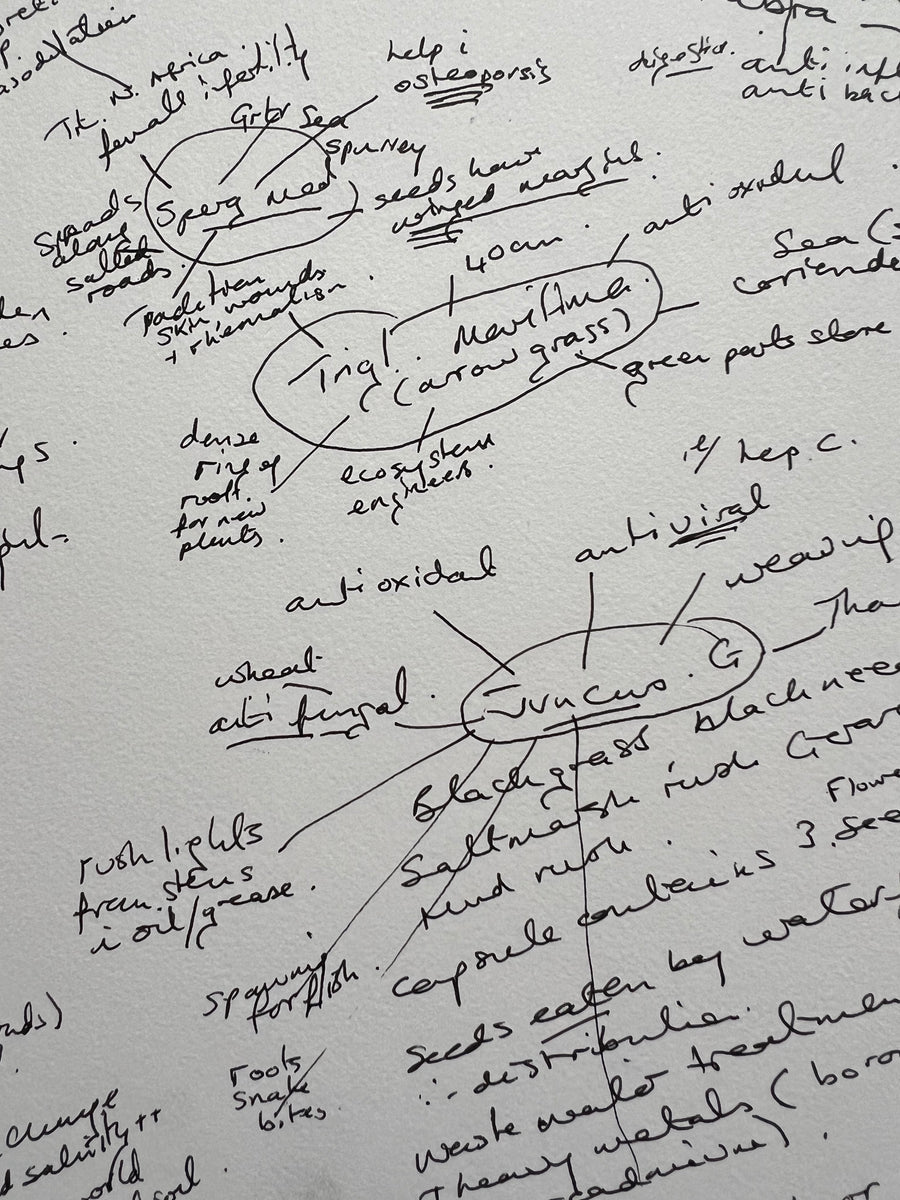 Trt. N. Africa.
female infertility
help c̄
osteoporosis
digestion.
anti infl
anti bac
Grtr Sea
spurrey
Sperg med
seeds have
winged margins.
Spreads
along
salted
roads.
tradition
skin wounds
+ rhematism.
40cm.
anti oxident
Sea (
coriende
Trigl. Maritima.
(arrow grass)
green parts store
dense
ring of
roots.
for new
plants.
ecosystem
engineers.
hep c.
anti viral
weaving
anti oxidant
wheat
anti fungal.
Juncus. G
Tha
Blackgrass blacknee
Saltmarsh rush Gerar
mud rush.
Flowe
capsule contains 3. see
rush lights
from stems
c̄ oil/grease.
spawning
for fish.
Seeds eaten by water
∴ distribution.
roots
snake
bites.
waste water treatmen
+ heavy metals (boro
cadmium).
change
salinity ++
world
soil.